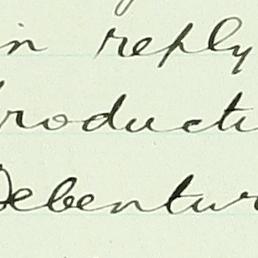 in reply
roducti
Debentur